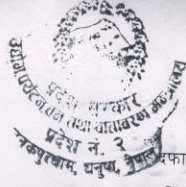 प्रदेश सरकार
उद्योग पर्यटन वन तथा वातावरण मन्त्रालय
प्रदेश नं. २
जनकपुरधाम, धनुषा, नेपाल
दफा